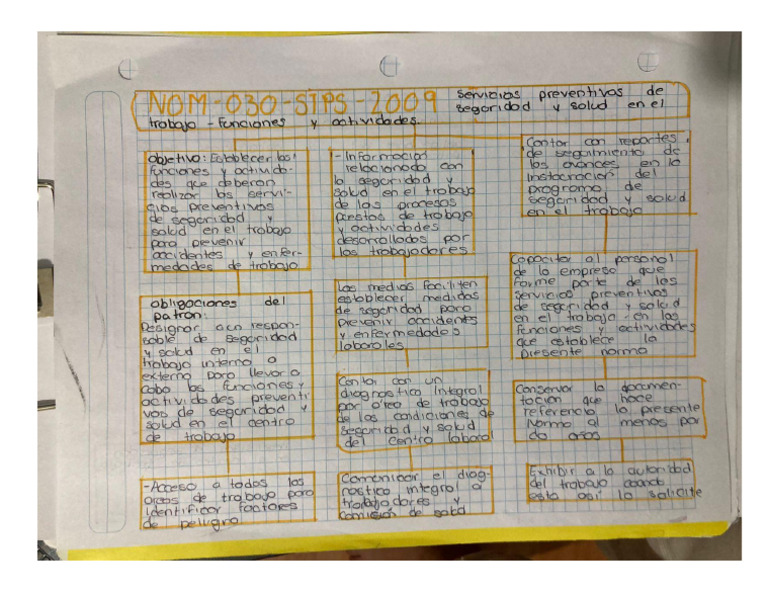 NOM-030-STPS-2009 servicios preventivos de
seguridad y salud en el
trabajo - Funciones y actividades.
Objetivo: Establecer las
funciones y activida-
des que deberan
realizar los servi-
cios preventivos
de seguridad y
salud en el trabajo
para pevenir
accidentes y enfer-
medades de trabajo
obligaciones del
patron:
Designar a un respon-
sable de seguridad
y salud en el
trabajo interno o
externo para llevar a
cabo las funciones y
actividades preventi
vas de seguridad y
salud en el centro
de trabajo
-Acceso a todas las
areas de trabajo para
identificar factores
de peligro
-Informacion
relacionada con
la seguridad y
salud en el trabajo
de los procesos
puestos de trabajo
y actividades
desarrollados por
los trabajadores
Los medios faciliten
establecer medidas
de seguridad para
prevenir accidentes
y enfermedades
laborales
Contar con un
diagnostico integral
por area de trabajo
de las condiciones de
seguridad y salud
del centro laboral
Comunicar el diag-
nostico integral a
trabajadores y
comision de salud
Contar con reportes
de seguimiento de
los avances en la
instauracion del
programa de
seguridad y salud
en el trabajo
Capacitar al personal
de la empresa que
forme parte de los
servicios preventivos
de seguridad y salud
en el trabajo en las
funciones y actividades
que establece la
presente norma
Conservar la documen-
tacion que hace
referencia la presente
Norma al menos por
dos años
Exhibir a la autoridad
del trabajo cuando
esta asi lo solicite